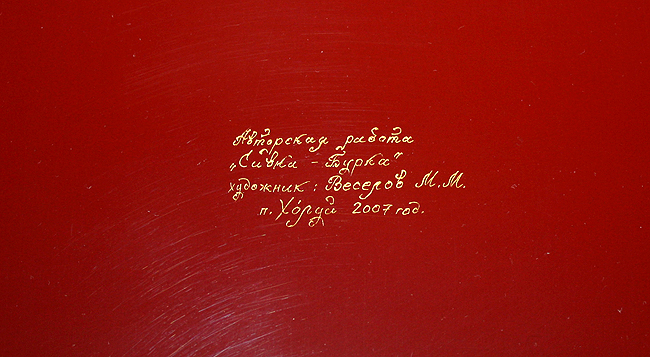 Авторская работа
„Сивка - Бурка"
художник: Веселов М.М.
п. Хо́луй 2007 год.